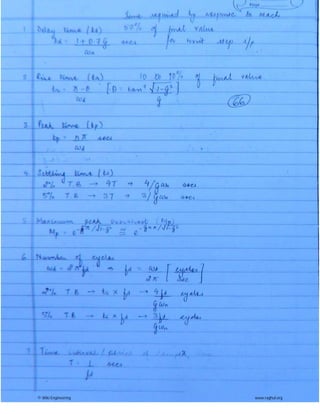 Time required by response to reach
1. Delay time (td) 50% of final value
td = 1 + 0.7 ξ secs for unit step i/p
ωn
2. Rise time (tr) 10 to 90% of final value
tr = π - θ [θ = tan⁻¹ √1-ξ²]
ωd ξ
66
3. Peak time (tp)
tp = nπ secs
ωd
4. Settling time (ts)
2% T.B → 4T → 4/ξωn secs
5% T.B → 3T → 3/ξωn secs
5. Maximum peak overshoot (Mp)
6. Number of cycles
ωd = 2πfd ⇒ fd = ωd [cycles]
2π [sec]
2% T.B → ts × fd → 4fd cycles
ξωn
5% T.B → ts × fd → 3fd cycles
ξωn
7. Time interval / period of
T = 1 secs
fd
© Wiki Engineering www.raghul.org